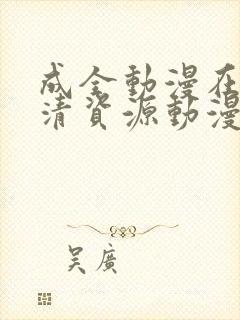 成全動漫在
清資源動漫
吴廣